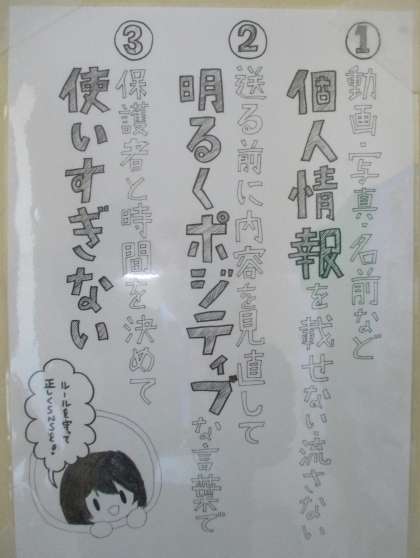 ①
動画・写真・名前など
個人情報を載せない流さない
②
送る前に内容を見直して
明るくポジティブな言葉で
③
保護者と時間を決めて
使いすぎない
ルールを守って
正しくSNSを!